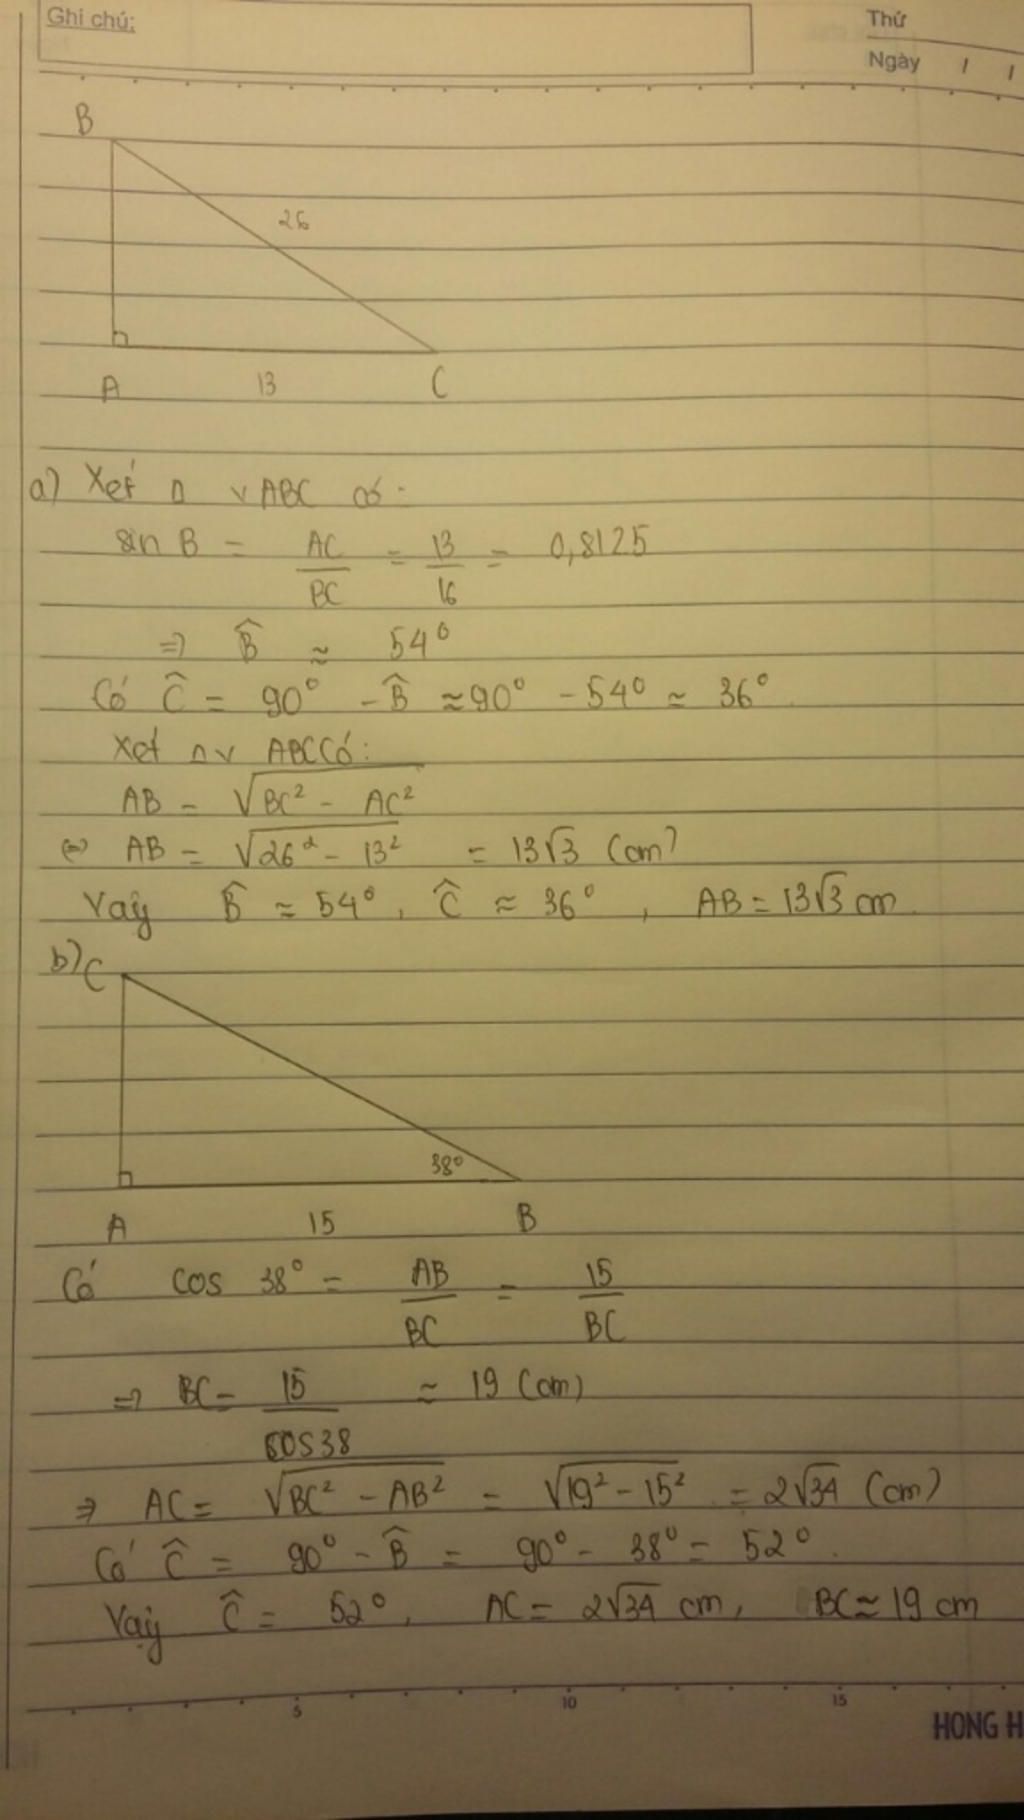 Ghi chú:
Thứ
Ngày / /
B
26
A 13 C
a) Xét Δ v ABC có:
sin B = AC/BC = 13/16 = 0,8125
⇒ B̂ ≈ 54°
Có Ĉ = 90° - B̂ ≈ 90° - 54° ≈ 36°.
Xét Δv ABC Có:
AB = √(BC² - AC²)
⇔ AB = √(26² - 13²) = 13√3 (cm)
Vậy B̂ ≈ 54°, Ĉ ≈ 36°, AB = 13√3 cm.
b) C
38°
A 15 B
Có cos 38° = AB/BC = 15/BC
⇒ BC = 15/cos38 ≈ 19 (cm)
⇒ AC = √(BC² - AB²) = √(19² - 15²) = 2√34 (cm)
Có Ĉ = 90° - B̂ = 90° - 38° = 52°.
Vậy Ĉ = 52°, AC = 2√34 cm, BC ≈ 19 cm
5 10 15
HONG H